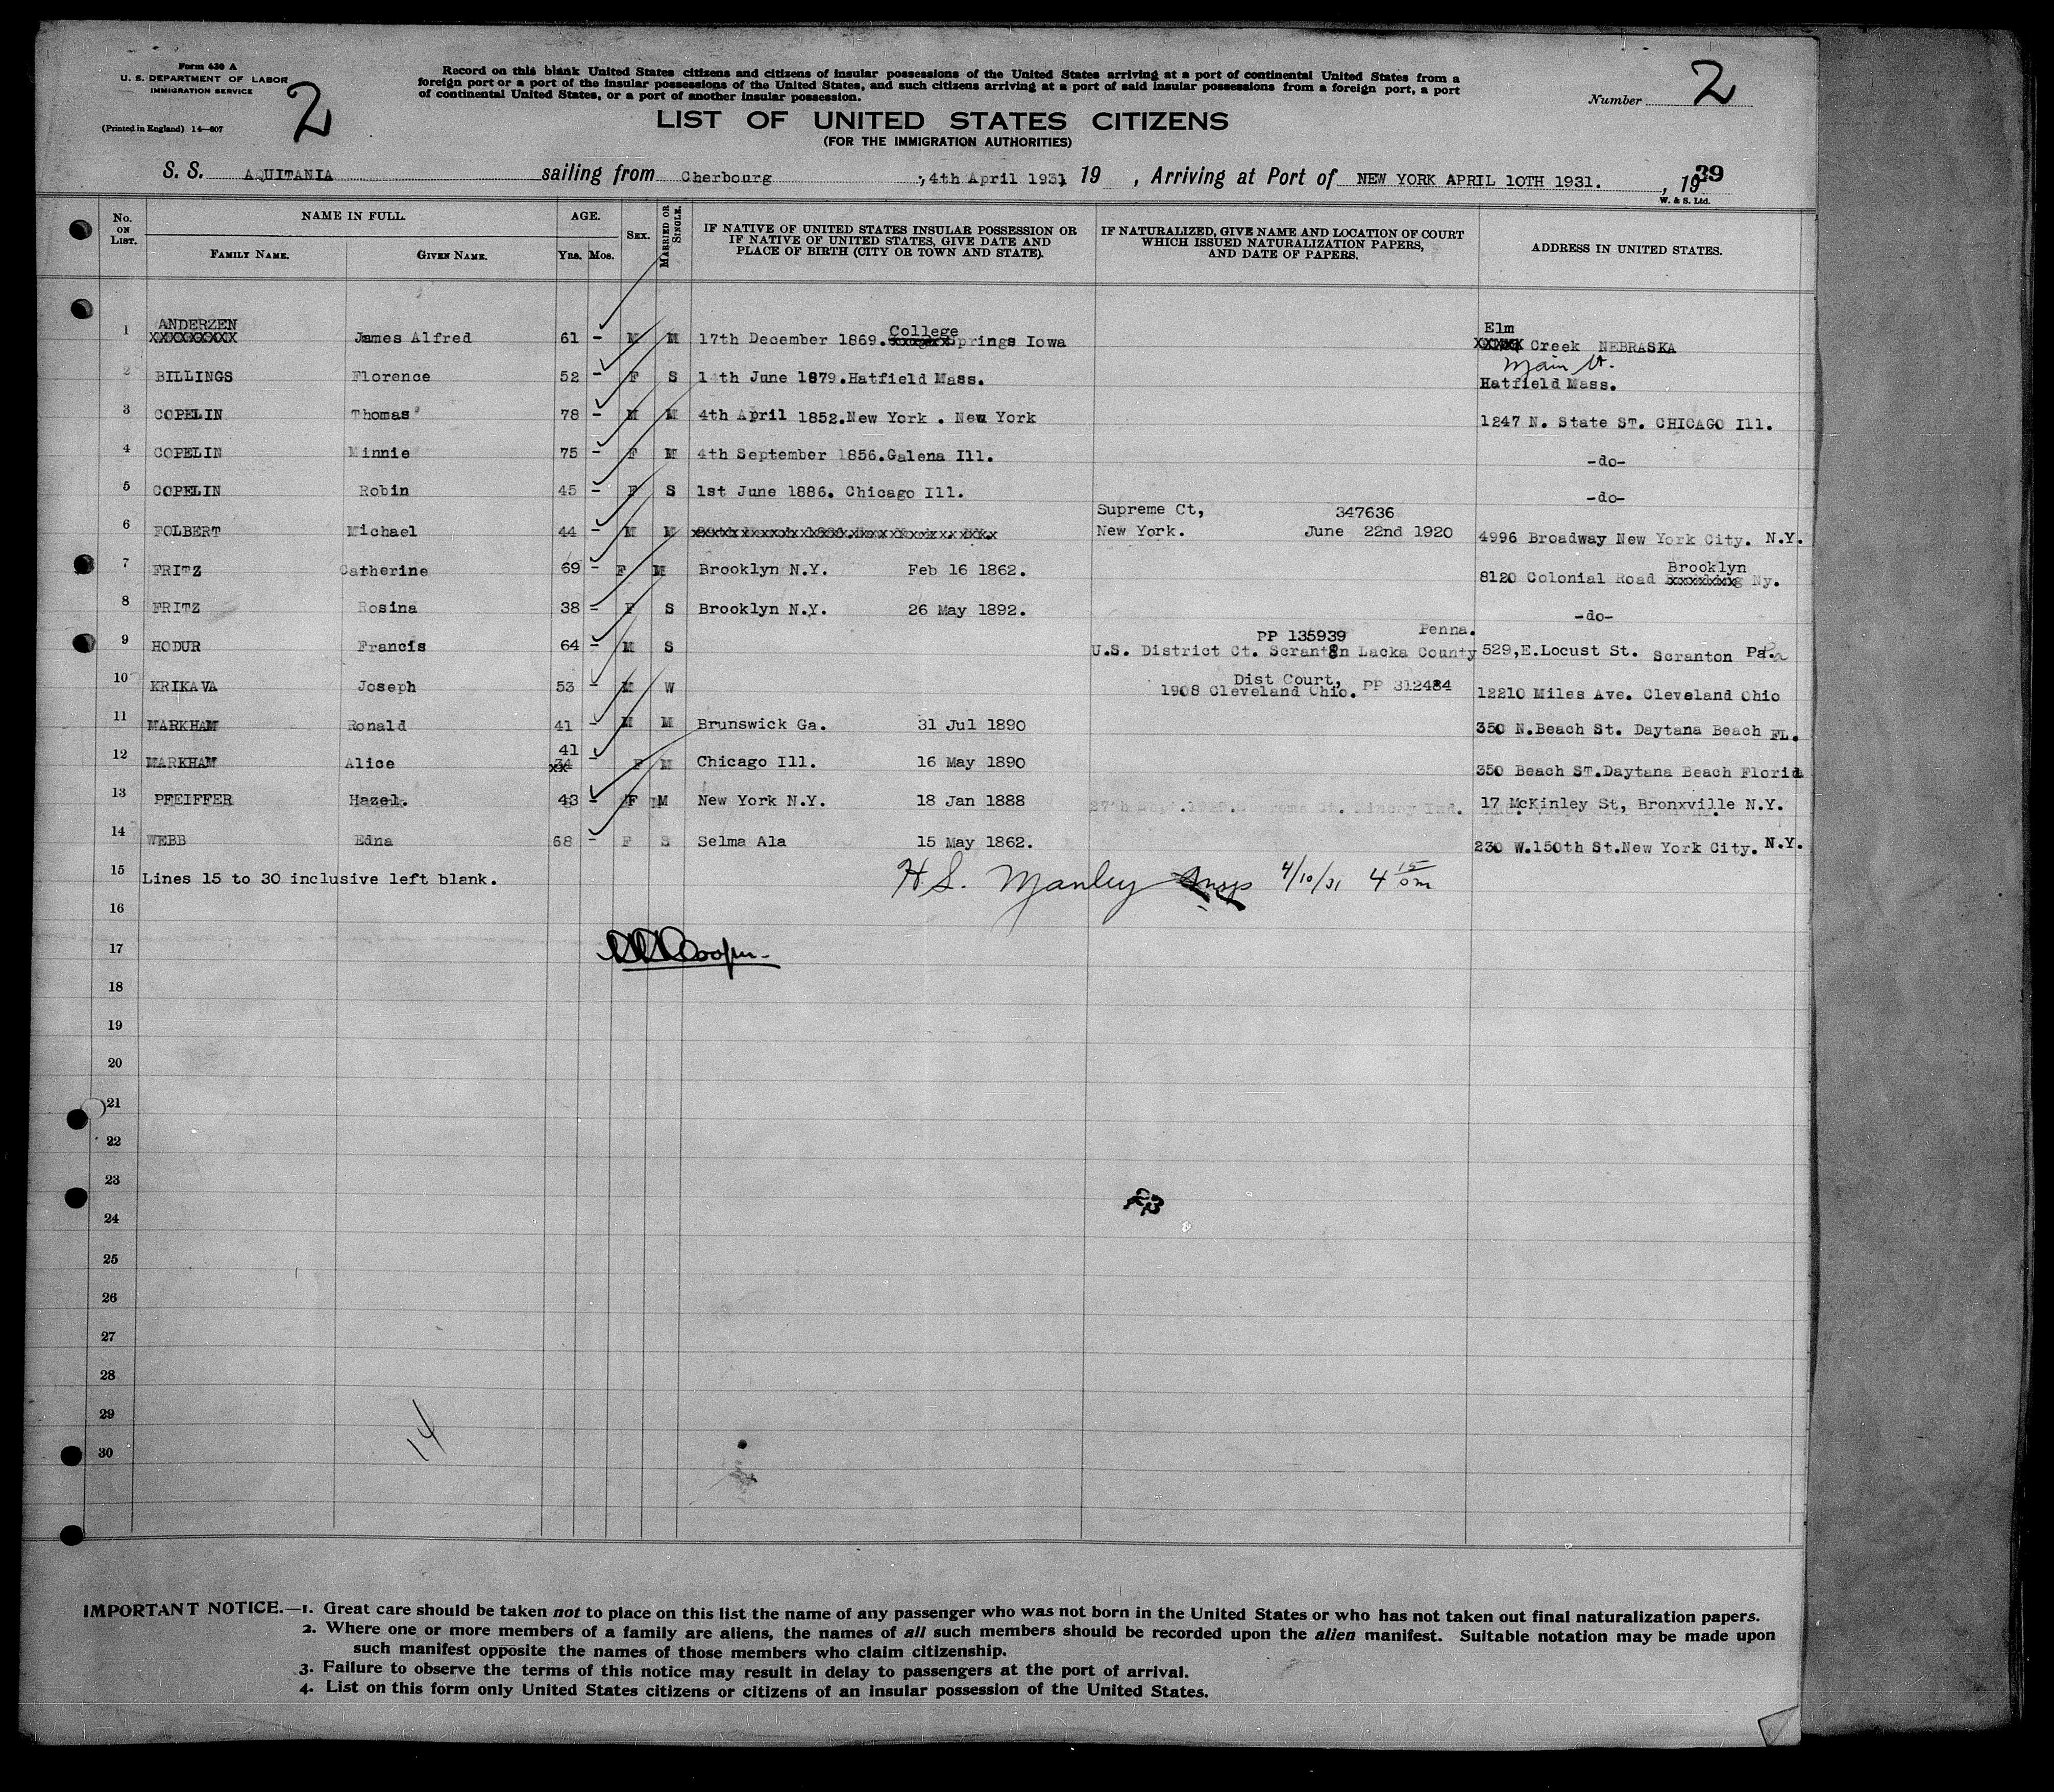 Form 630 A
U. S. DEPARTMENT OF LABOR
IMMIGRATION SERVICE
(Printed in England) 14—607
2
Record on this blank United States citizens and citizens of insular possessions of the United States arriving at a port of continental United States from a
foreign port or a port of the insular possessions of the United States, and such citizens arriving at a port of said insular possessions from a foreign port, a port
of continental United States, or a port of another insular possession.
Number 2
LIST OF UNITED STATES CITIZENS
(FOR THE IMMIGRATION AUTHORITIES)
S. S. AQUITANIA sailing from Cherbourg ,4th April 1931, 19 , Arriving at Port of NEW YORK APRIL 10TH 1931. , 19 39
W. & S. Ltd.
No. ON LIST. NAME IN FULL. FAMILY NAME. GIVEN NAME. AGE. Yrs. Mos. SEX. MARRIED OR SINGLE. IF NATIVE OF UNITED STATES INSULAR POSSESSION OR IF NATIVE OF UNITED STATES, GIVE DATE AND PLACE OF BIRTH (CITY OR TOWN AND STATE). IF NATURALIZED, GIVE NAME AND LOCATION OF COURT WHICH ISSUED NATURALIZATION PAPERS, AND DATE OF PAPERS. ADDRESS IN UNITED STATES.
1 ANDERZEN James Alfred 61 – M M 17th December 1869. College Springs Iowa Elm Creek NEBRASKA
2 BILLINGS Florence 52 – F S 14th June 1879.Hatfield Mass. Main St. Hatfield Mass.
3 COPELIN Thomas 78 – M M 4th April 1852.New York . New York 1247 N. State ST. CHICAGO Ill.
4 COPELIN Minnie 75 – F M 4th September 1856.Galena Ill. -do-
5 COPELIN Robin 45 – F S 1st June 1886. Chicago Ill. -do-
6 FOLBERT Michael 44 – M M Supreme Ct, 347636 New York. June 22nd 1920 4996 Broadway New York City. N.Y.
7 FRITZ Catherine 69 – F M Brooklyn N.Y. Feb 16 1862. 8120 Colonial Road Brooklyn Ny.
8 FRITZ Rosina 38 – F S Brooklyn N.Y. 26 May 1892. -do-
9 HODUR Francis 64 – M S PP 135939 Penna. U.S. District Ct. Scranton Lacka County 529,E.Locust St. Scranton Pa.
10 KRIKAVA Joseph 53 – M W Dist Court, 1908 Cleveland Ohio. PP 312484 12210 Miles Ave. Cleveland Ohio
11 MARKHAM Ronald 41 – M M Brunswick Ga. 31 Jul 1890 350 N.Beach St. Daytana Beach FL.
12 MARKHAM Alice 41 34 F M Chicago Ill. 16 May 1890 350 Beach ST.Daytana Beach Florid
13 PFEIFFER Hazel. 43 – F M New York N.Y. 18 Jan 1888 17 McKinley St, Bronxville N.Y.
14 WEBB Edna 68 – F S Selma Ala 15 May 1862. 230 W.150th St.New York City. N.Y.
15 Lines 15 to 30 inclusive left blank. H S. Manley 4/10/31 4 15 pm
16
17 Cooper
18
19
20
21
22
23
24
25
26
27
28
29
30
14
IMPORTANT NOTICE.—1. Great care should be taken not to place on this list the name of any passenger who was not born in the United States or who has not taken out final naturalization papers.
2. Where one or more members of a family are aliens, the names of all such members should be recorded upon the alien manifest. Suitable notation may be made upon
such manifest opposite the names of those members who claim citizenship.
3. Failure to observe the terms of this notice may result in delay to passengers at the port of arrival.
4. List on this form only United States citizens or citizens of an insular possession of the United States.